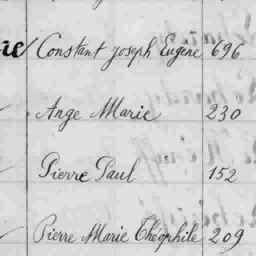 Constant Joseph Eugène 696
Ange Marie 230
Pierre Paul 152
Pierre Marie Théophile 209